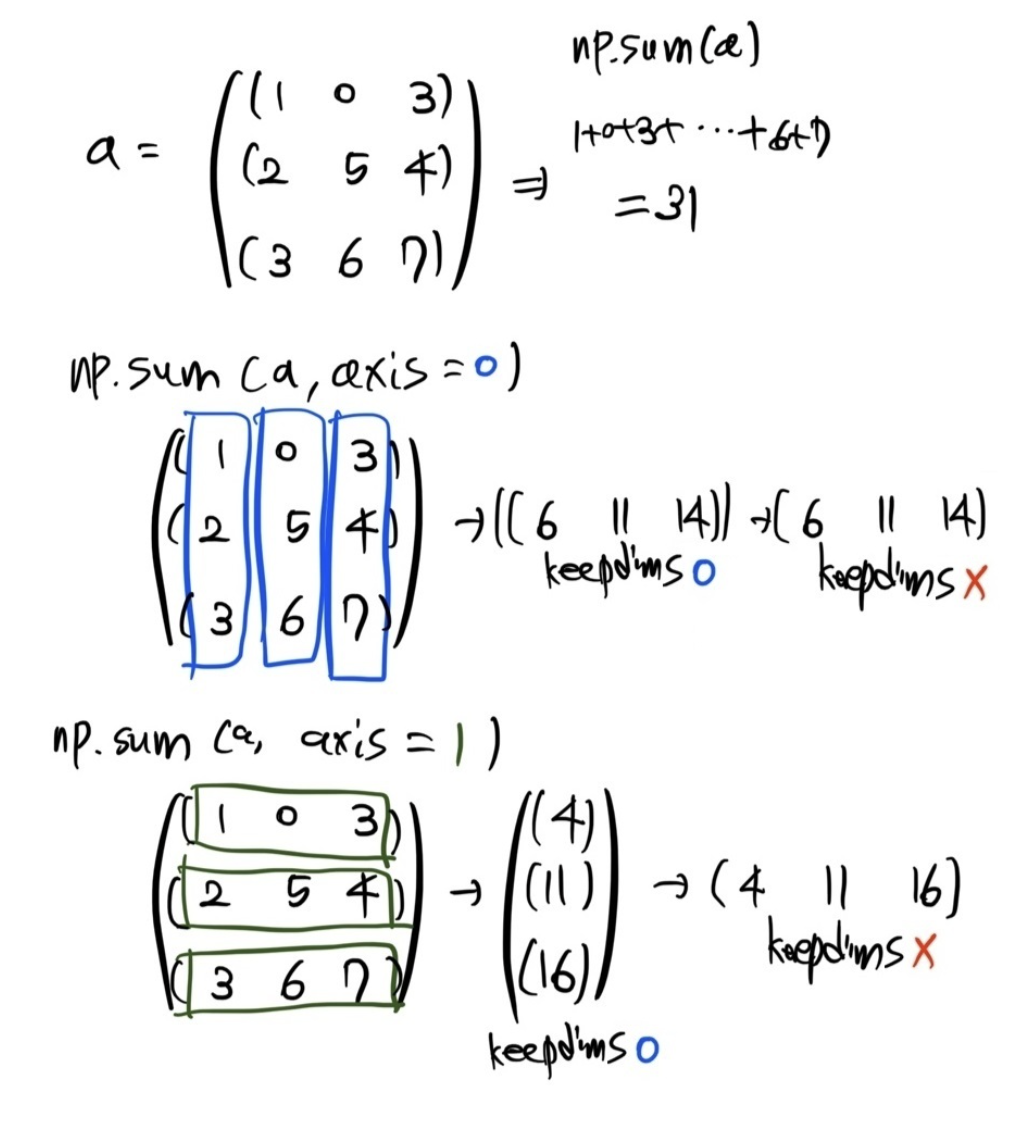 np.sum(a)
a = ((1 0 3)
(2 5 4)
(3 6 7)) ⇒
1+0+3+ ... +6+7)
=31
np.sum (a, axis = 0)
((1 0 3)
(2 5 4)
(3 6 7))
→ ((6 11 14)) → (6 11 14)
keepdims O keepdims X
np.sum (a, axis = 1)
((1 0 3)
(2 5 4)
(3 6 7))
→ ((4)
(11)
(16))
→ (4 11 16)
keepdims X
keepdims O